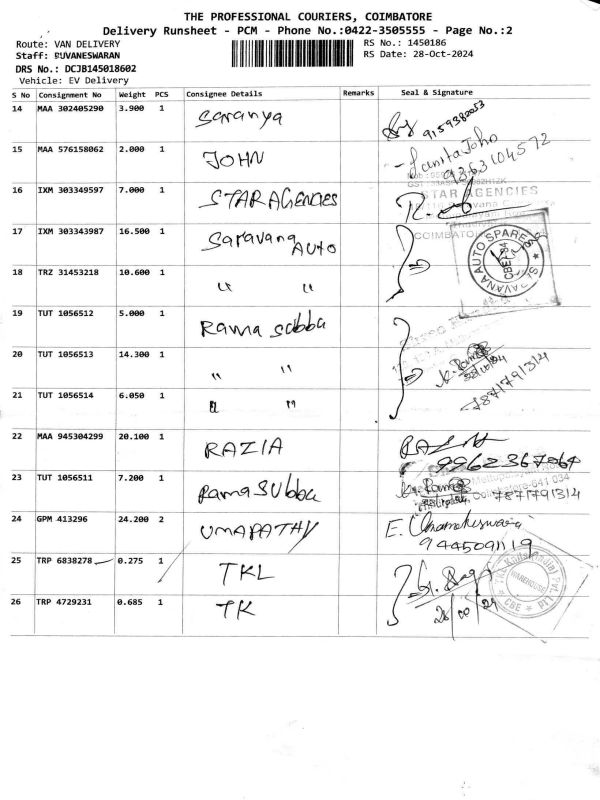 THE PROFESSIONAL COURIERS, COIMBATORE
Delivery Runsheet - PCM - Phone No.:0422-3505555 - Page No.:2
Route: VAN DELIVERY
RS No.: 1450186
Staff: BUVANESWARAN
RS Date: 28-Oct-2024
DRS No.: DCJB145018602
Vehicle: EV Delivery
S No Consignment No Weight PCS Consignee Details Remarks Seal & Signature
14 MAA 302405290 3.900 1 Saranya 9159380053
15 MAA 576158062 2.000 1 JOHN Sanita John
9363104572
16 IXM 303349597 7.000 1 STAR AGENCIES STAR AGENCIES
17 IXM 303343987 16.500 1 Saravana AUTO SARAVANA AUTO SPARES CBE
18 TRZ 31453218 10.600 1 " "
19 TUT 1056512 5.000 1 Rama Subba
20 TUT 1056513 14.300 1 " "
787179 1314
21 TUT 1056514 6.050 1 " "
22 MAA 945304299 20.100 1 RAZIA
9962367864
23 TUT 1056511 7.200 1 Rama Subba Coimbatore-641 034
7871791314
24 GPM 413296 24.200 2 UMAPATHY E. Umamaheswari
9445091119
25 TRP 6838278 0.275 1 TKL
26 TRP 4729231 0.685 1 TK WAREHOUSE CBE